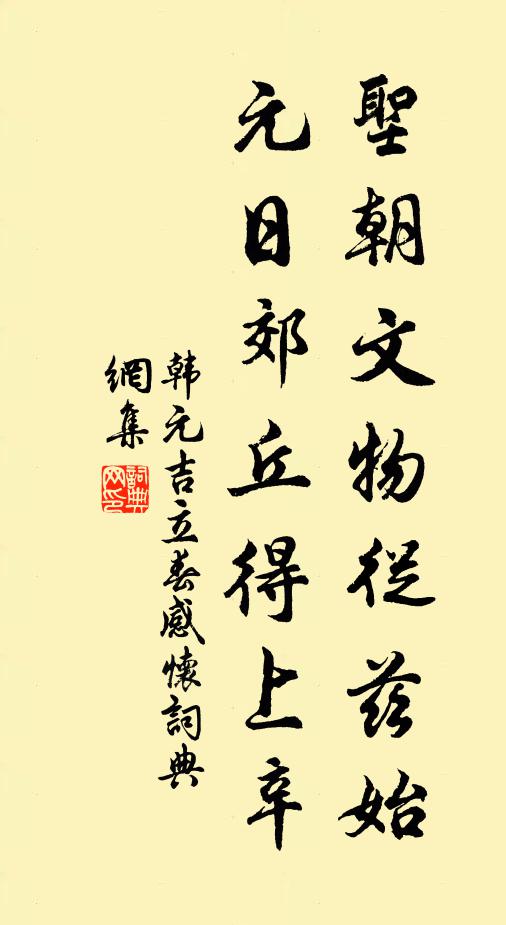 聖朝文物從茲始
元日郊丘得上辛
韩元吉立春感懷詞典
網集
詞典
网印